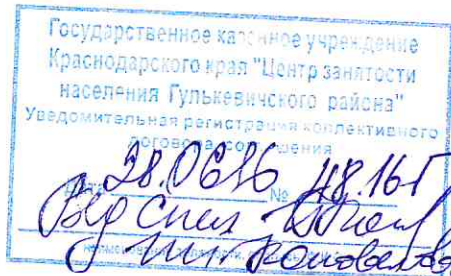 Государственное казенное учреждение
Краснодарского края "Центр занятости
населения Гулькевичского района"
Уведомительная регистрация коллективного
договора, соглашения
28.06.16 № 48.16-Г
Вед спец